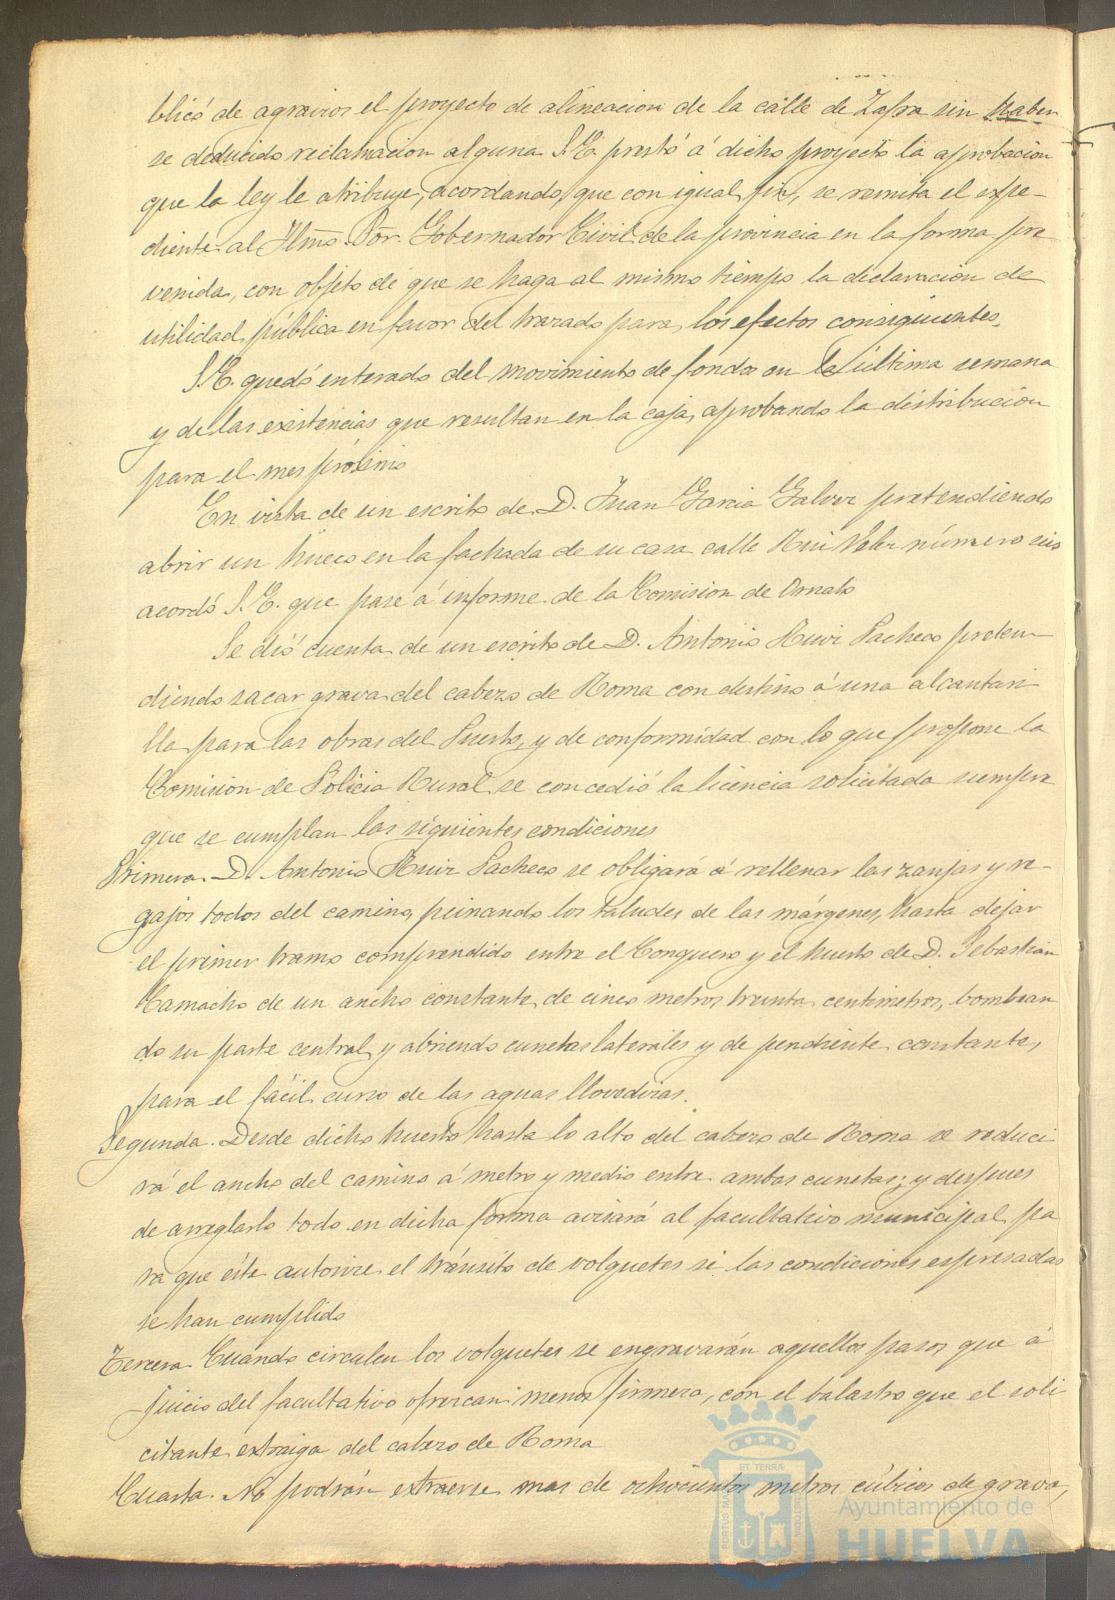 blicó de agravios el proyecto de alineacion de la calle de Zafra sin haber
se deducido reclamacion alguna S.E. prestó á dicho proyecto la aprobacion
que la ley le atribuye, acordando, que con igual fin, se remita el espe-
diente al Ilmo. Sor. Gobernador Civil de la provincia en la forma pre
venida, con objeto de que se haga al mismo tiempo la declaracion de
utilidad pública en favor del trazado para los efectos consiguientes.
S.E. quedó enterado del movimiento de fondos en la última semana
y de las existencias que resultan en la caja, aprobando la distribucion
para el mes próximo
En vista de un escrito de D. Juan Garcia Galvez pretendiendo
abrir un hueco en la fachada de su casa calle Rui Velez número seis
acordó S.E. que pase á informe de la Comision de Ornato
Se dió cuenta de un escrito de D. Antonio Ruiz Pacheco preten-
diendo sacar grava del cabezo de Roma con destino á una alcantari
lla para las obras del Puerto, y de conformidad con lo que propone la
Comision de Policia Rural se concedió la licencia solicitada siempre
que se cumplan las siguientes condiciones
Primera. D. Antonio Ruiz Pacheco se obligará á rellenar las zanjas y re-
gajos todos del camino, peinando los taludes de las márgenes, hasta dejar
el primer tramo comprendido entre el Conquero y el huerto de D. Sebastian
Camacho de un ancho constante de cinco metros treinta centimetros, bombean
do su parte central y abriendo cunetas laterales y de pendiente constante,
para el fácil curso de las aguas llovedizas.
Segunda. Desde dicho huerto hasta lo alto del cabezo de Roma se reduci
rá el ancho del camino á metro y medio entre ambas cunetas; y despues
de arreglarlo todo en dicha forma avisará al facultativo municipal pa
ra que éste autorice el tránsito de volquetes si las condiciones espresadas
se han cumplido
Tercera. Cuando circulen los volquetes se engravarán aquellos pasos que á
juicio del facultativo ofrezcan menos firmeza, con el balastro que el soli
citante extraiga del cabezo de Roma
Cuarta. No podrán extraerse mas de ochocientos metros cúbicos de grava,
ET TERRA
Ayuntamiento de
HUELVA